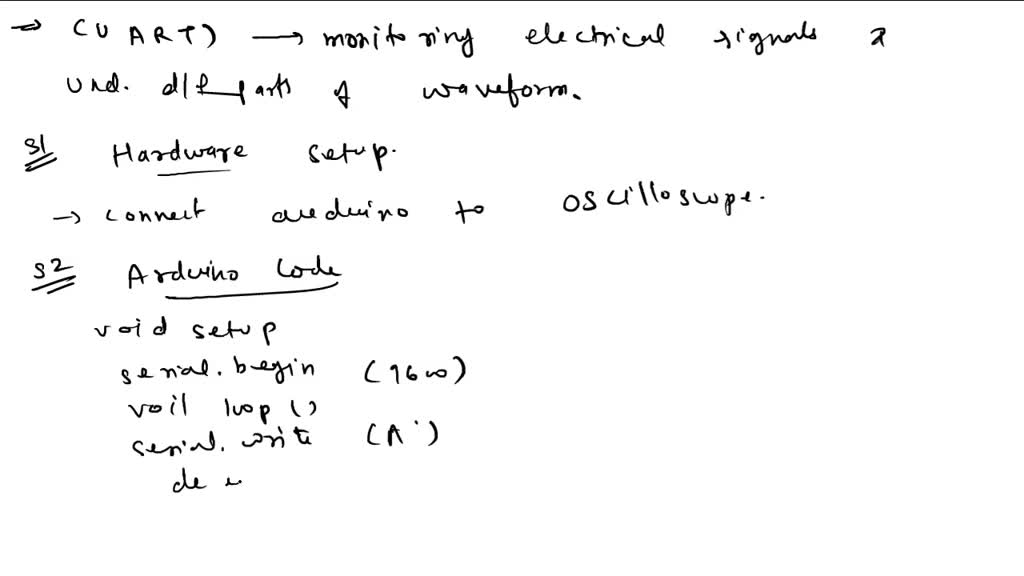 → (UART) → monitoring electrical signals &
und. diff parts of waveform.
S1 Hardware setup.
→ connect arduino to oscilloscope.
S2 Arduino Code
void setup
serial.begin (9600)
void loop ()
serial.write (A')
de